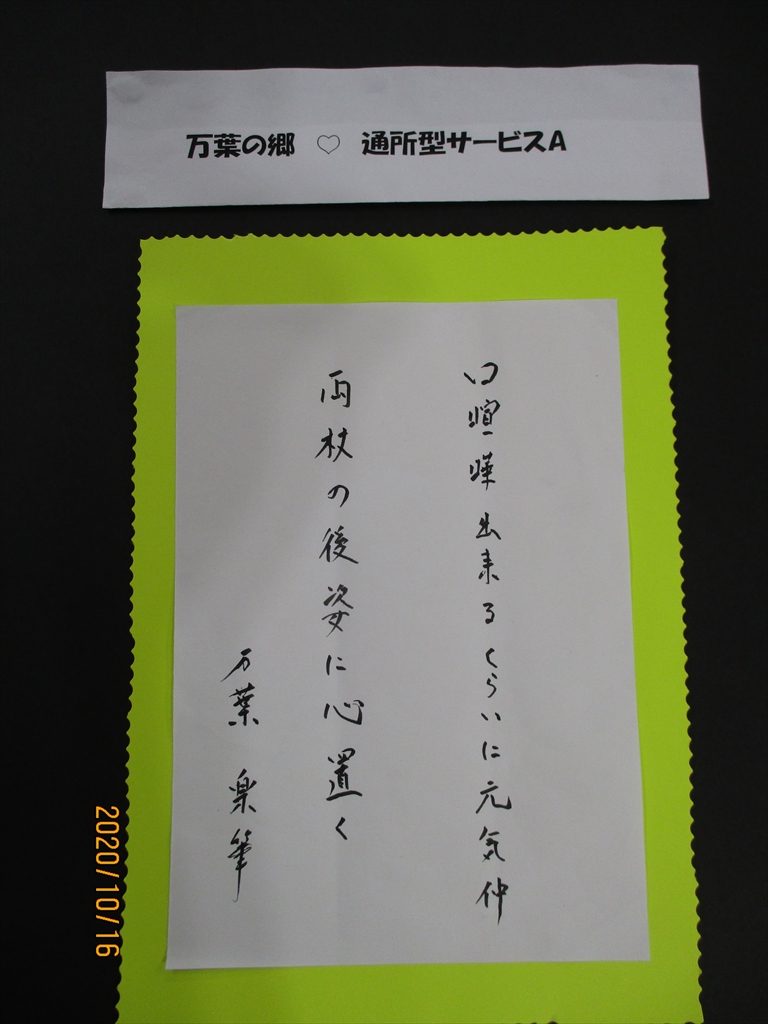 万葉の郷 ♡ 通所型サービスA
口喧嘩出来るくらいに元気仲
両杖の後姿に心置く
万葉 楽筆
2020/10/16